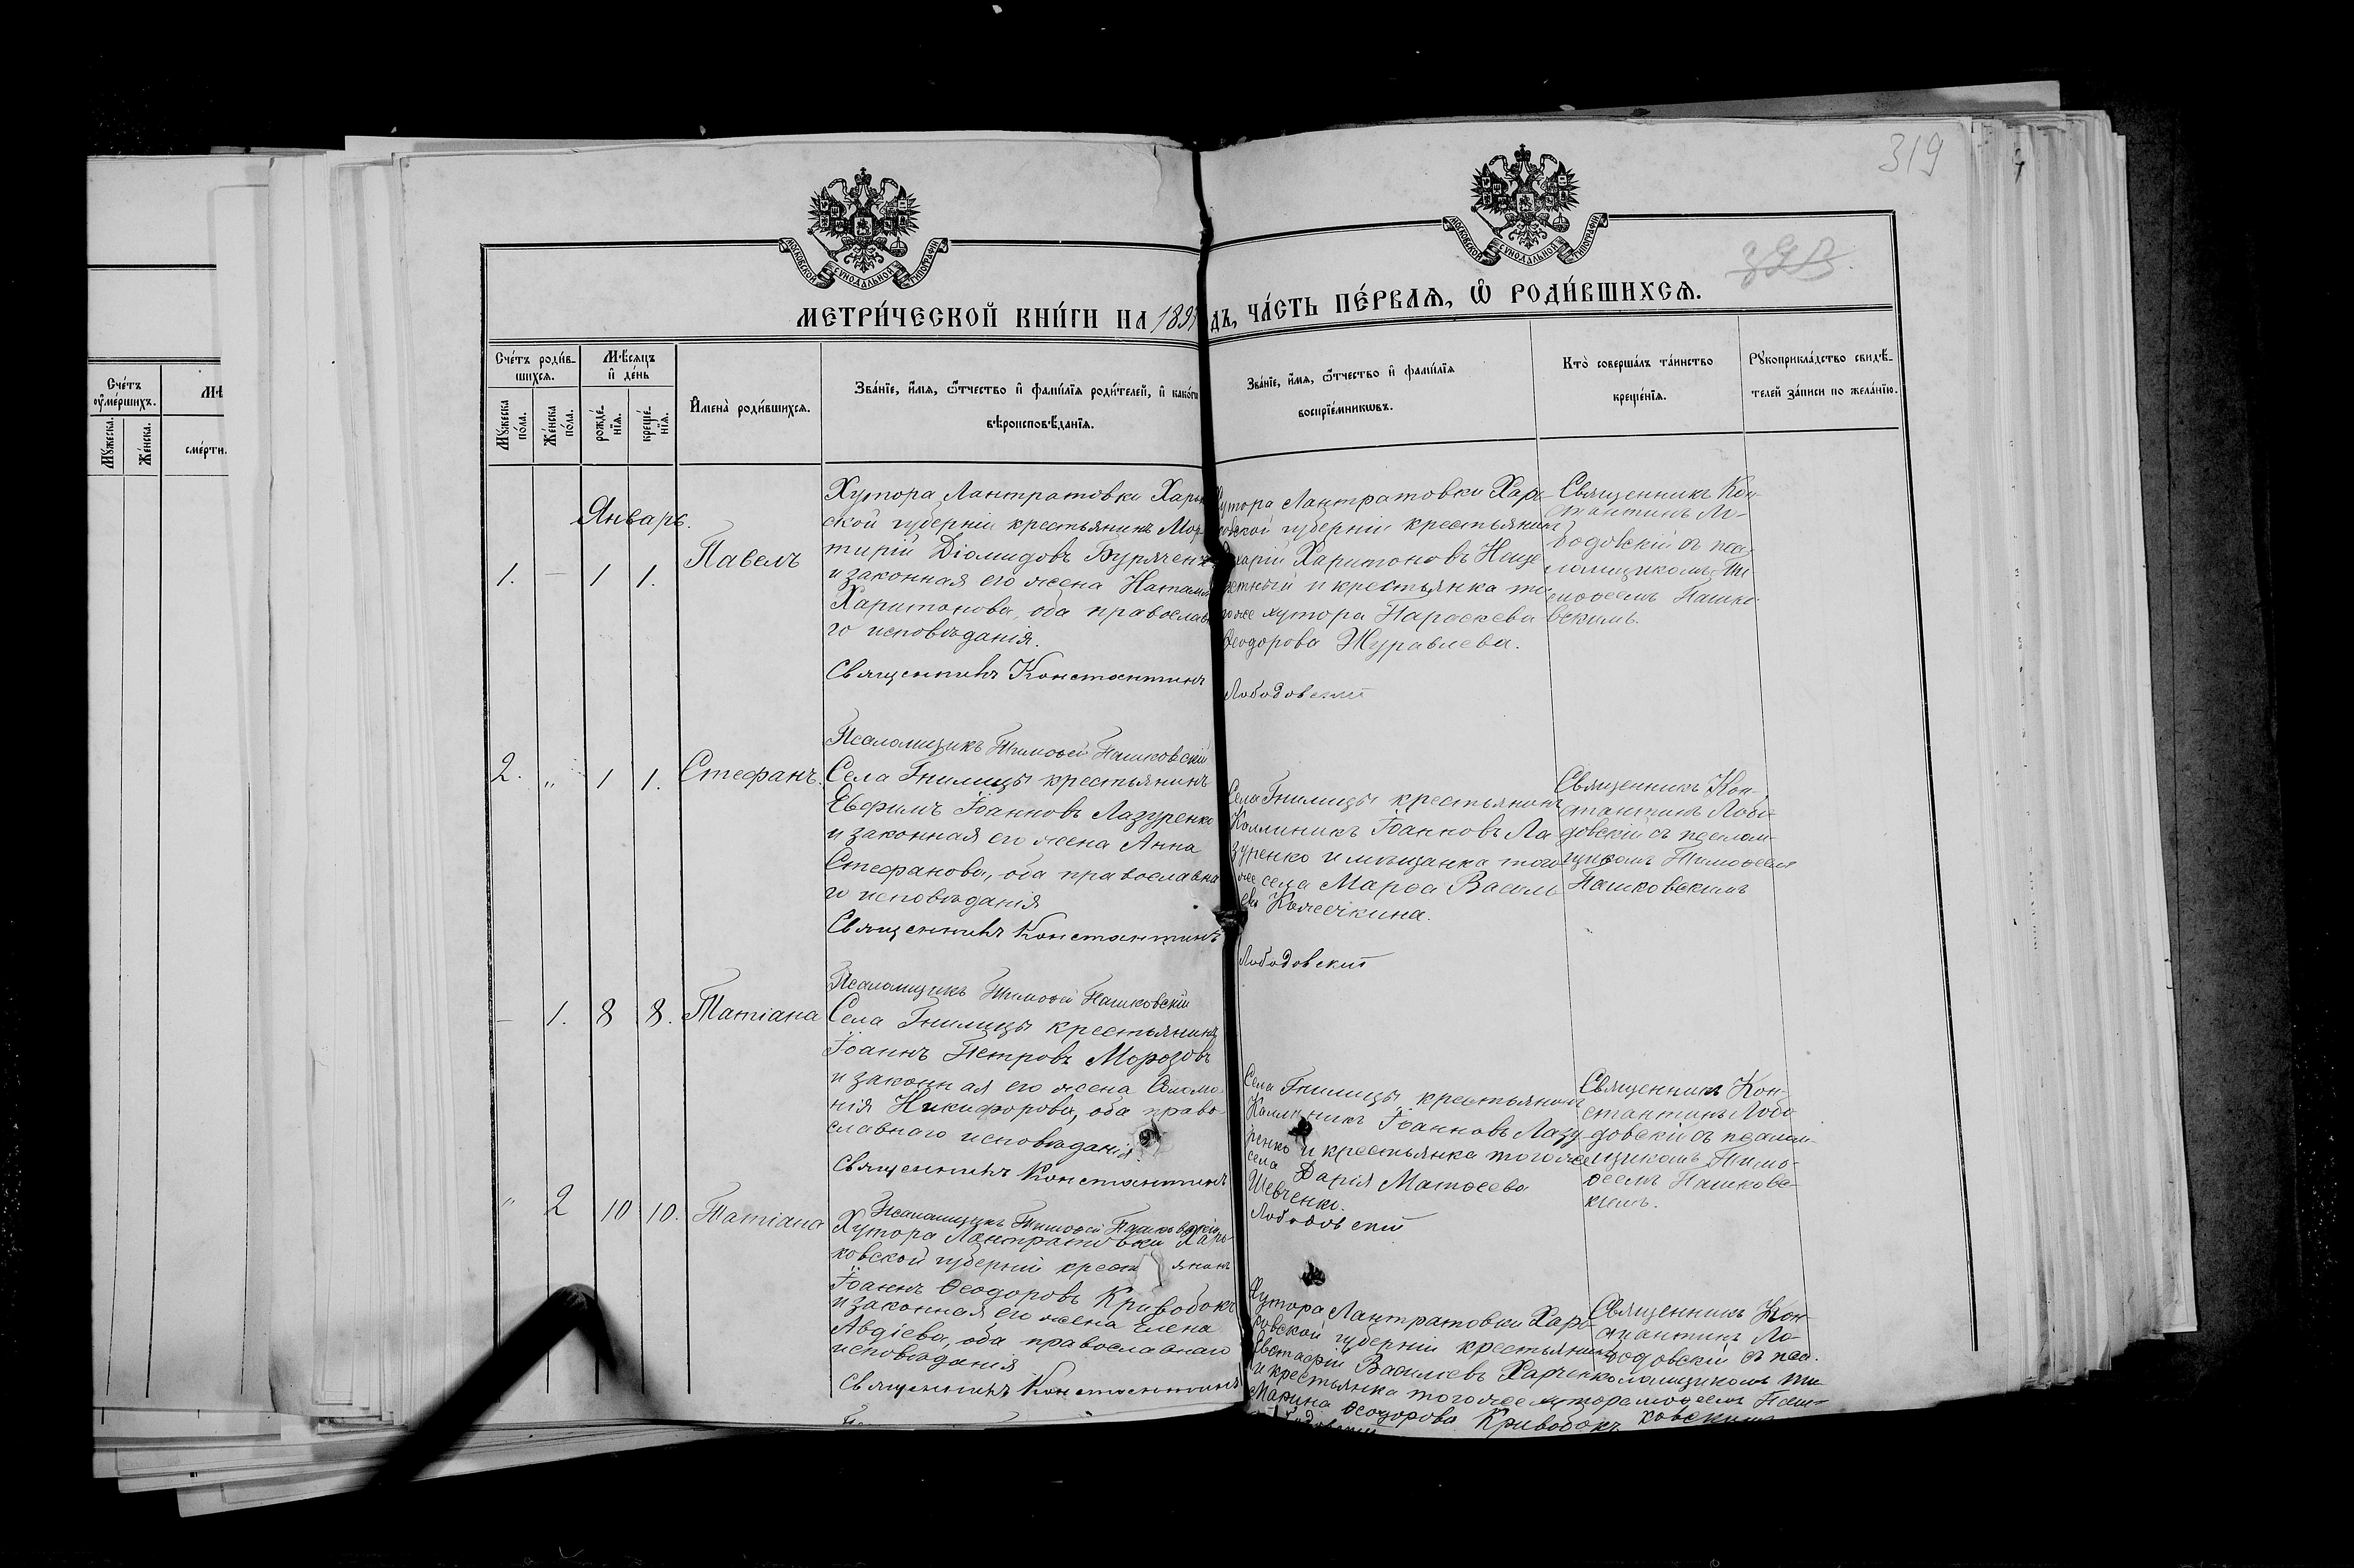 319
МОСКОВСКОЙ СѴНОДАЛЬНОЙ ТИПОГРАФІИ
МОСКОВСКОЙ СѴНОДАЛЬНОЙ ТИПОГРАФІИ
МЕТРИ́ЧЕСКОЙ КНИ́ГИ НА 189 ДЪ, ЧА́СТЬ ПЕ́РВАѦ, Ѽ РОДИ́ВШИХСѦ.
Счетъ ᲂумершихъ.
Мѹжеска.
Женска.
смерти.
Счетъ родив-
шихсѧ.
Мѣсѧцъ
и день
Мѹжеска пола.
Женска пола.
рожде-
нїѧ.
креще-
нїѧ.
Имена родившихсѧ.
Званїе, имѧ, ѿчество и фамилїѧ родителей, и какого
вѣроисповѣданїѧ.
Званїе, имѧ, ѿчество и фамилїѧ
воспрїемникѡвъ.
Кто совершалъ таинство
крещенїѧ.
Рѹкоприкладство свидѣ-
телей записи по желанїю.
Январь.
1. — 1 1. Павелъ
Хутора Лантратовки Харьк
ской губерніи крестьянинъ Мар
тирій Діомидовъ Бурячен
и законная его жена Натал
Харитонова, оба православ
го исповѣданія.
Священникъ Константинъ
Псаломщикъ Тимоѳей Пашковскій
Хутора Лантратовки Харь-
ковской губерніи крестьянинъ
Харитоновъ Неще
и крестьянка то
гоже хутора Параскева
Ѳеодорова Журавлева.
Лободовскій
Священникъ Кон-
стантинъ Ло-
бодовскій съ пса
ломщикомъ Ти
моѳеемъ Пашко
вскимъ.
2. „ 1 1. Стефанъ.
Села Гнилицы крестьянинъ
Евфимъ Іоанновъ Лазуренко
и законная его жена Анна
Стефанова, оба православна
го исповѣданія
Священникъ Константинъ
Псаломщикъ Тимоѳей Пашковскій
Села Гнилицы крестьянинъ
Каллиникъ Іоанновъ Ла
зуренко и мѣщанка того
же села Марѳа Васил
ева
Лободовскій
Священникъ Кон-
стантинъ Лобо-
довскій съ псалом-
щикомъ Тимоѳеемъ
Пашковскимъ
— 1. 8 8. Татіана
Села Гнилицы крестьянинъ
Іоаннъ Петровъ Морозовъ
и законная его жена Соломо
нія Никифорова, оба право-
славнаго исповѣданія.
Священникъ Константинъ
Псаломщикъ Тимоѳей Пашковскій
Села Гнилицы крестьянинъ
Каллиникъ Іоанновъ Лазу
ренко и крестьянка тогоже
села Дарія Матѳеева
Шевченко.
Лободовскій
Священникъ Кон-
стантинъ Лобо
довскій съ псалом-
щикомъ Тимо-
ѳеемъ Пашковс-
кимъ.
„ 2 10 10. Татіана
Хутора Лантратовки Харь-
ковской губерніи крест янинъ
Іоаннъ Ѳеодоровъ Кривобокъ
и законная его жена Елена
Авдіева, оба православнаго
исповѣданія
Священникъ Константинъ
Хутора Лантратовки Харь-
ковской губерніи крестьянинъ
Евстафій Василіевъ Харченко
и крестьянка тогоже хутора
Марина Ѳеодорова Кривобокъ
Священникъ Кон-
стантинъ Ло-
бодовскій съ пса-
ломщикомъ Ти-
моѳеемъ Паш-
ковскимъ